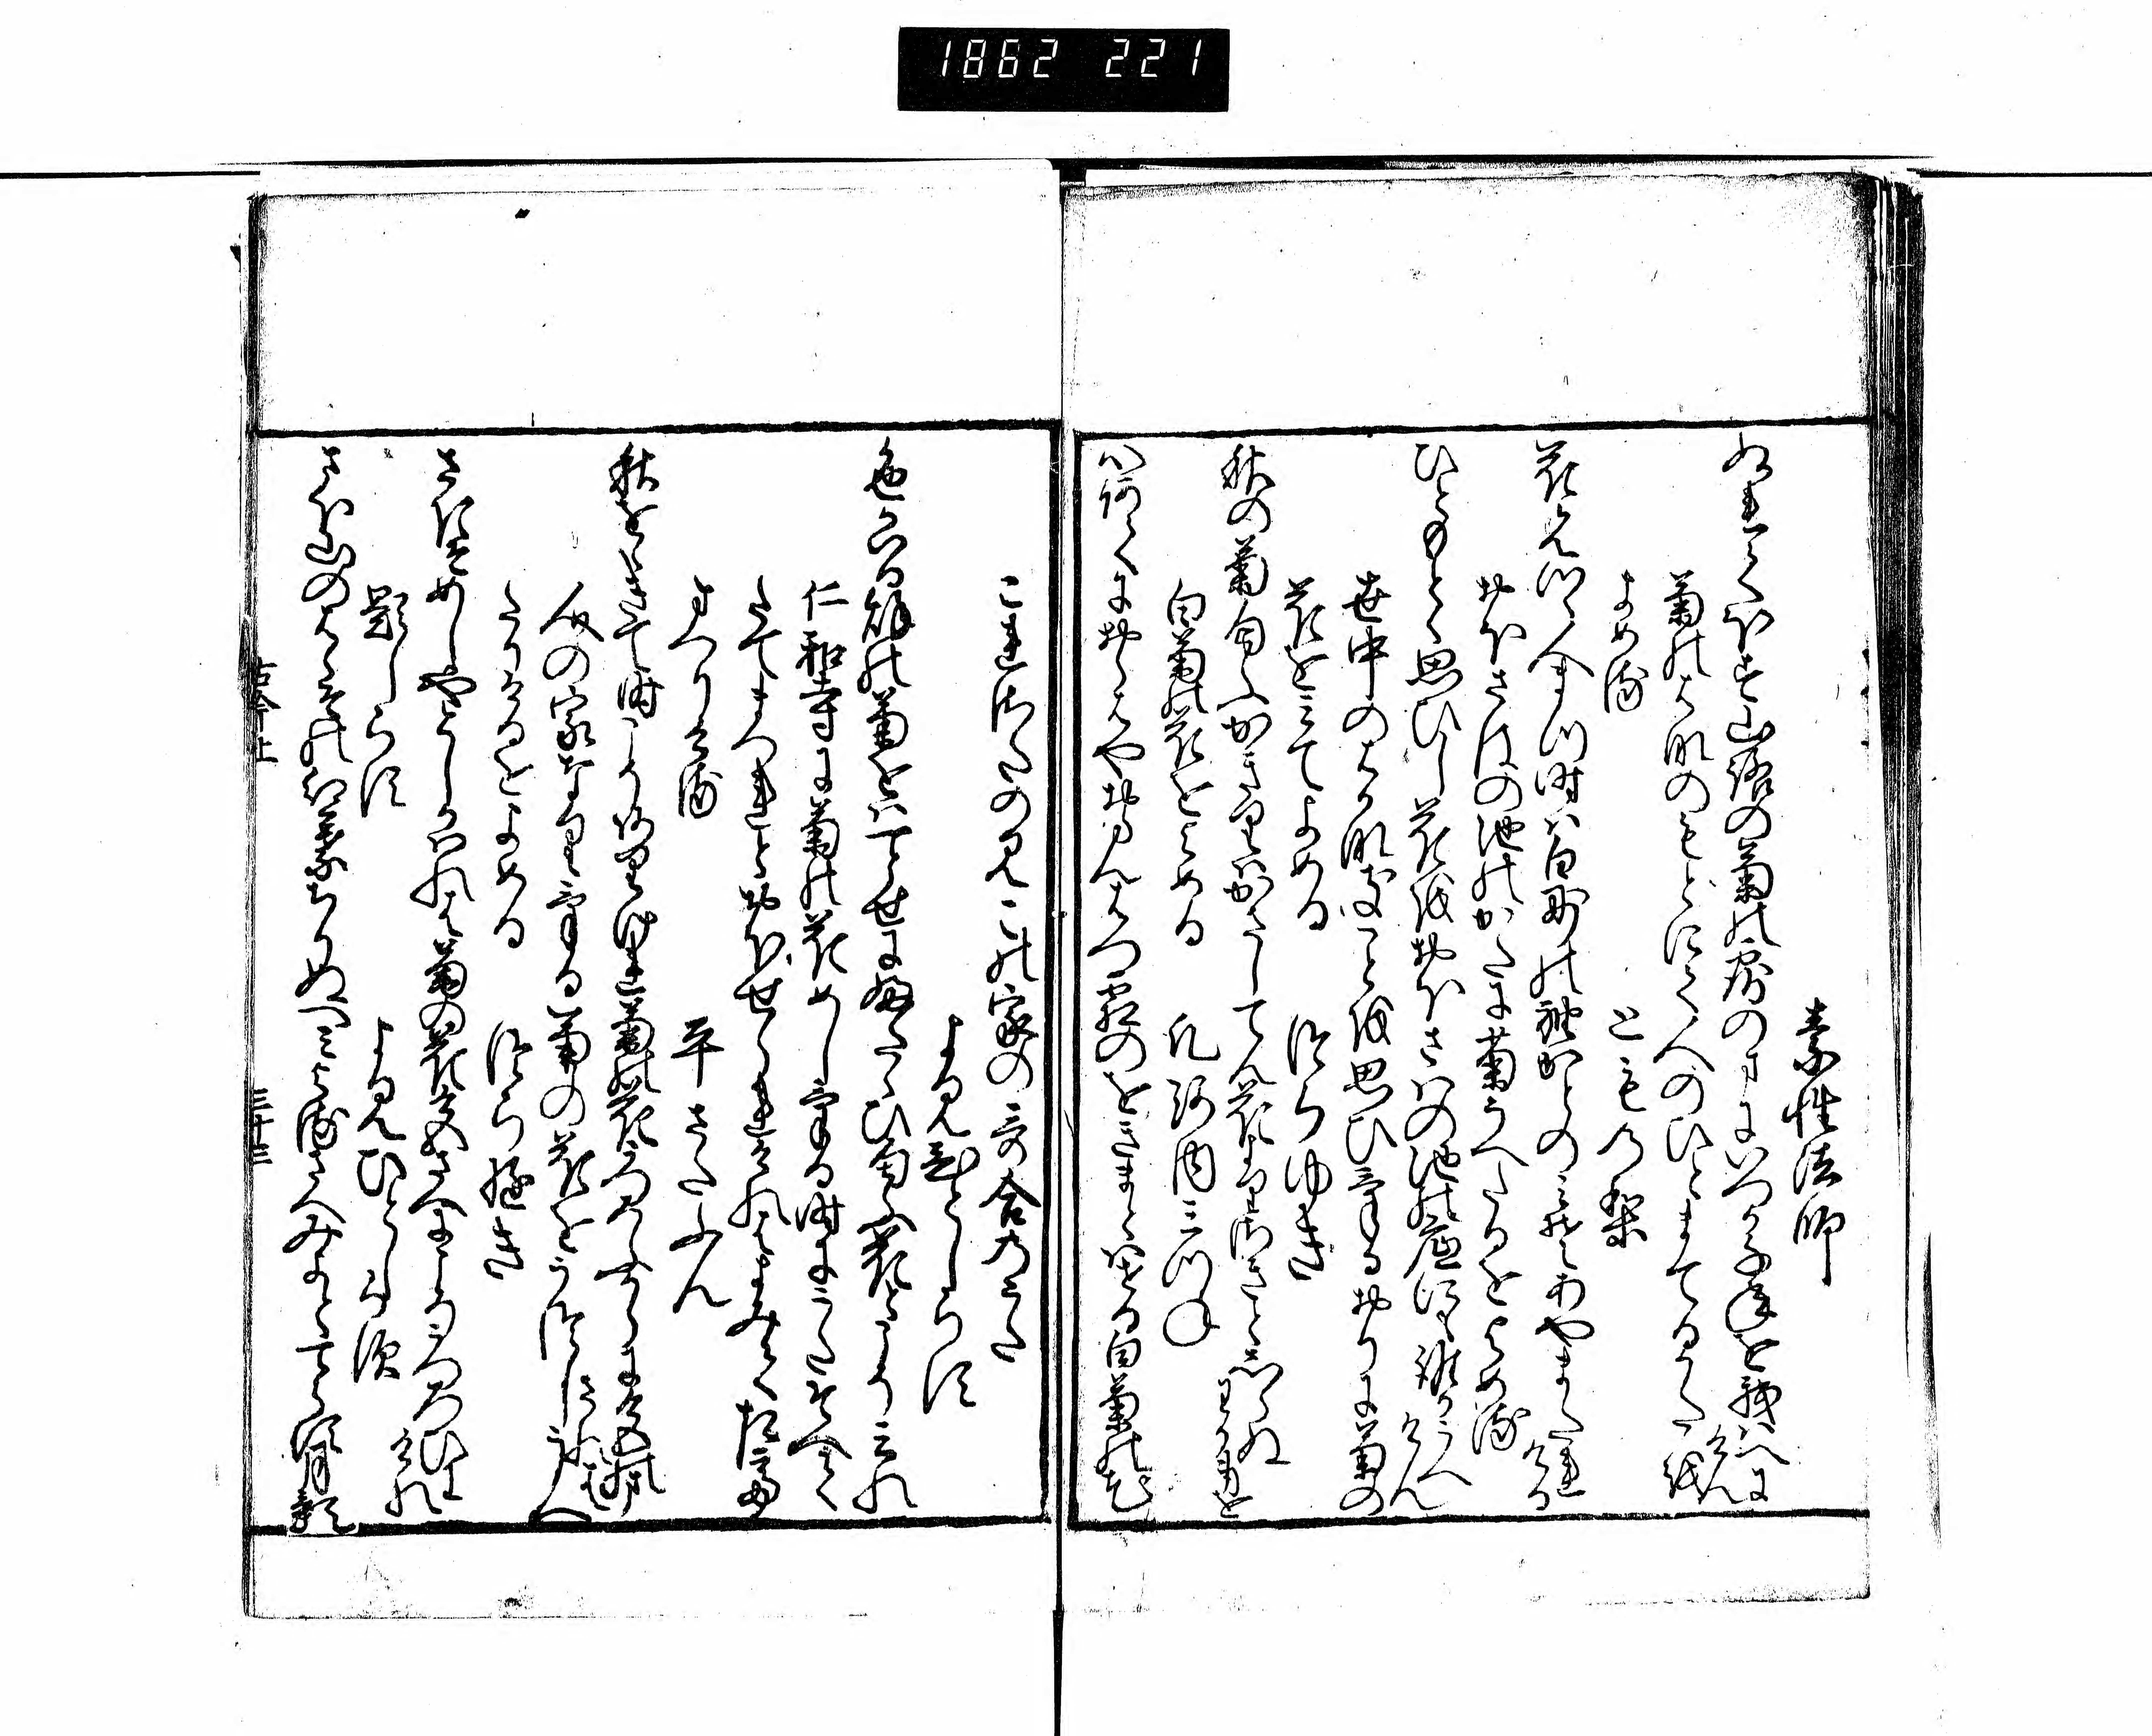 1862 221
素性法師
ぬれてほす山路の菊の露のまにいつか千年を我はへにけん
菊の花のもとにて人のひとまてるかたを
よめる
とものり
花見つゝ人まつ時は白妙の袖かとのみそあやまたれける
おほさはの池のかたに菊うへたるをよめる
ひともとゝ思ひし花をおほさはの池の底にも誰かうへけん
世中のはかなきことを思ひける折に菊の
花をみてよめる
つらゆき
秋の菊匂ふかきりはかさしてん花よりさきとしらぬわか身を
白菊の花をよめる
凡河内みつね
心あてにおらはやおらんはつ霜のをきまとはせる白菊の花
これさたのみこの家の哥合のうた
よみ人しらす
色かはる秋の菊をは一とせに再ひ匂ふ花とこそみれ
仁和寺に菊の花めしける時にうたそへて
たてまつれとおほせられけれはよみて奉
まつりける
平さたふん
秋をゝきて時こそ有けれ菊の花うつろふからに色のまされは
人の家なりける菊の花をうつしうへ
たりけるをよめる
つらゆき
さきそめしやとしかはれは菊の花色さへにこそうつろひにけれ
題しらす
よみひとしらす
さほ山のはゝその紅葉ちりぬへみよるさへみよとてらす月影
古今上
三十三